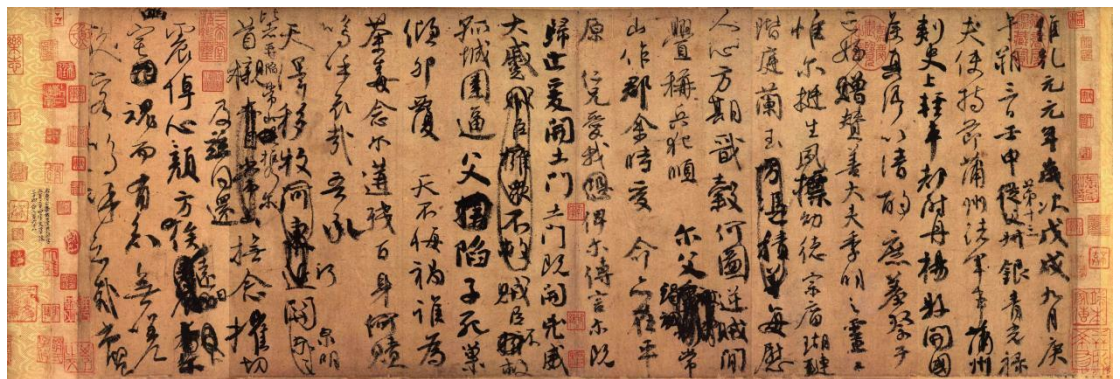 維乾元元年歲次戊戌九月庚
午朔三日壬申第十三從父叔銀青光祿
夫使持節蒲州諸軍事蒲州
刺史上輕車都尉丹楊縣開國
侯真卿以清酌庶羞祭于
亡姪贈贊善大夫季明之靈曰
惟爾挺生夙標幼德宗廟瑚璉
階庭蘭玉方憑積善每慰
人心方期戩穀何圖逆賊閒
釁稱兵犯順爾父竭誠常
山作郡余時受命亦在平
原仁兄愛我恐俾爾傳言爾既
歸止爰開土門土門既開凶威
大蹙賊臣擁眾不救賊臣不救
孤城圍逼父陷子死巢
傾卵覆天不悔禍誰為
荼毒念爾遘殘百身何贖
嗚乎哀哉吾承
天澤移牧河關泉明
比者再陷常山攜爾
首櫬及茲同還撫念摧切
震悼心顏方俟遠日
宅魂而有知無嗟
久客嗚呼哀哉尚饗